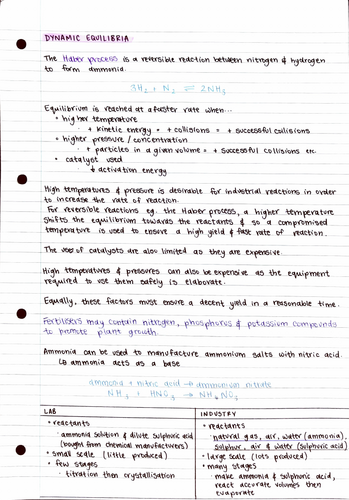 DYNAMIC EQUILIBRIA
The Haber process is a reversible reaction between nitrogen & hydrogen
to form ammonia.
3H₂ + N₂ ⇌ 2NH₃
Equilibrium is reached at a faster rate when...
• higher temperature
↳ + kinetic energy = + collisions = + successful collisions
• higher pressure / concentration
↳ + particles in a given volume = + successful collisions etc.
• catalyst used
↳ ↓ activation energy
High temperatures & pressure is desirable for industrial reactions in order
to increase the rate of reaction.
For reversible reactions eg. the Haber process, a higher temperature
shifts the equilibrium towards the reactants & so a compromised
temperature is used to ensure a high yield & fast rate of reaction.
The uses of catalysts are also limited as they are expensive.
High temperatures & pressures can also be expensive as the equipment
required to use them safely is elaborate.
Equally, these factors must ensure a decent yield in a reasonable time.
Fertilisers may contain nitrogen, phosphorus & potassium compounds
to promote plant growth.
Ammonia can be used to manufacture ammonium salts with nitric acid.
↳ ammonia acts as a base
ammonia + nitric acid → ammonium nitrate
NH₃ + HNO₃ → NH₄NO₃
LAB
• reactants
ammonia solution & dilute sulphuric acid
(bought from chemical manufacturers)
• small scale (little produced)
• few stages
↳ titration then crystallisation
INDUSTRY
• reactants
natural gas, air, water (ammonia).
sulphur, air & water (sulphuric acid)
• large scale (lots produced)
• many stages
make ammonia & sulphuric acid,
react accurate volumes then
evaporate